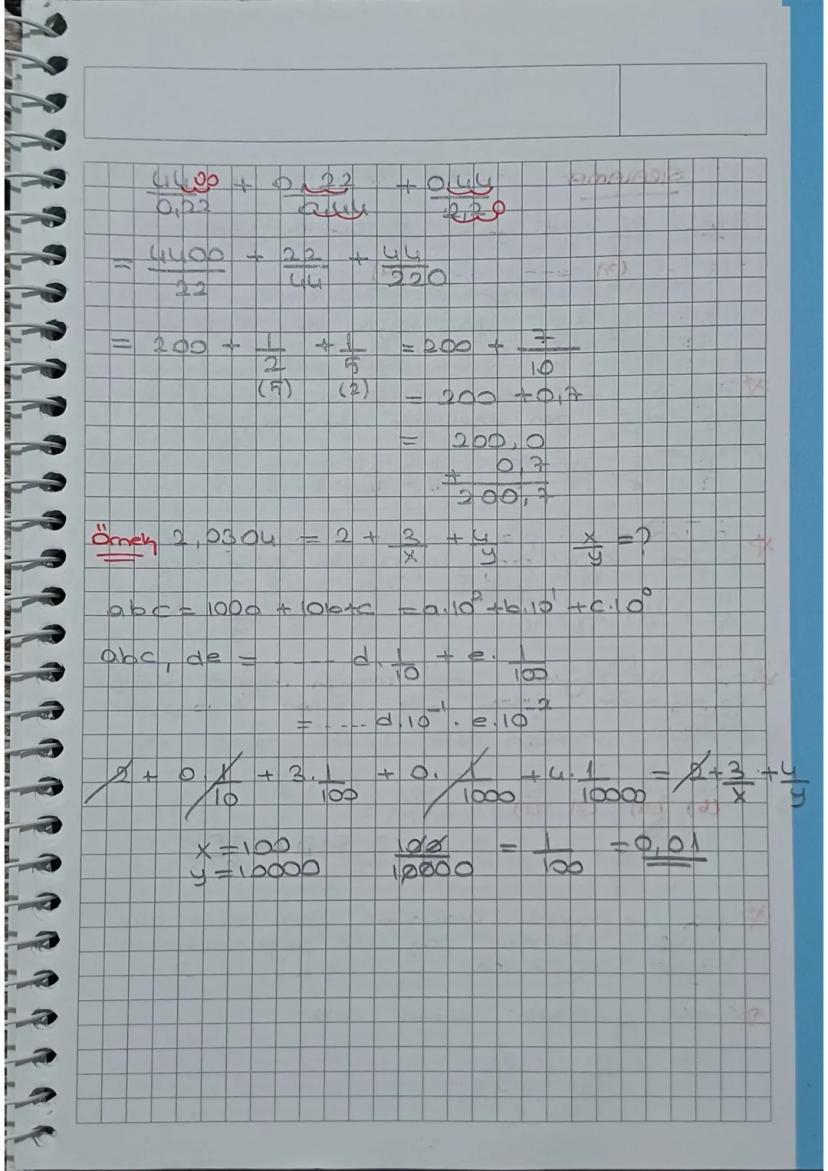 4400/0,22 + 0,22/0,44 + 0,44/2,20
= 4400/22 + 22/44 + 44/220
= 200 + 1/2 + 1/5 = 200 + 7/10
(5) (2) = 200 + 0,7
= 200,0
+ 0,7
200,7
Örnek 2,0304 = 2 + 3/x + 4/y x/y = ?
abc = 100a + 10b+c = a.10² + b.10¹ + c.10⁰
abc, de = ...... d.1/10 + e.1/100
= .... d.10⁻¹ . e.10⁻²
2 + 0.1/10 + 3.1/100 + 0.1/1000 + 4.1/10000 = 2 + 3/x + 4/y
x = 100 100/10000 = 1/100 = 0,01
y = 10000